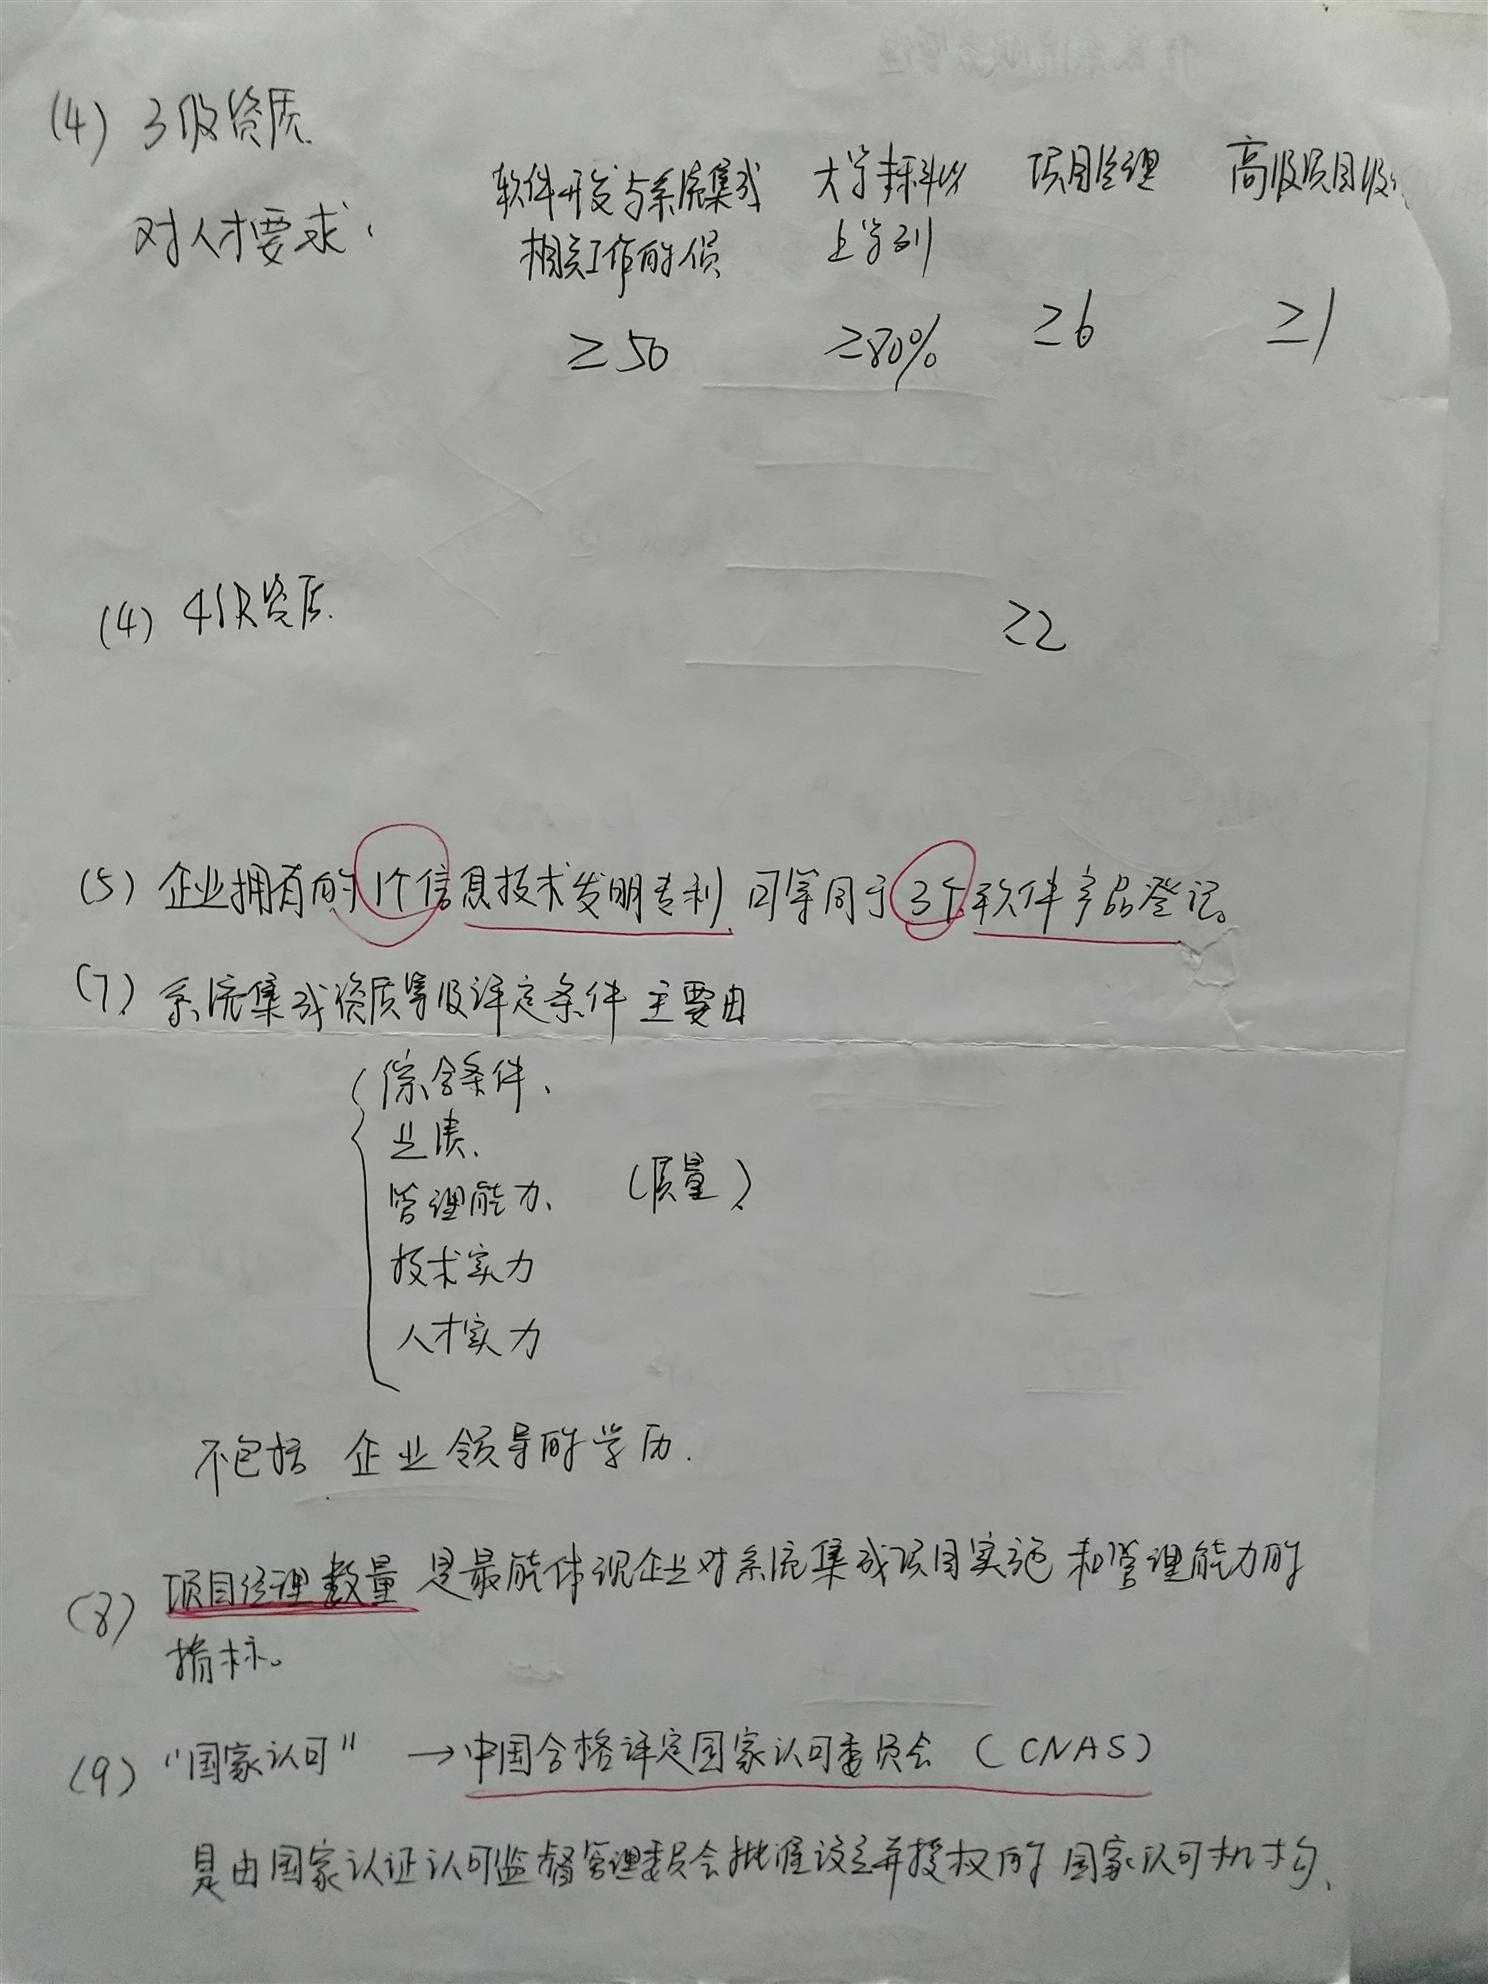 (4) 3级资质.
对人才要求.
软件开发与系统集成 大学本科以 项目经理 高级项目经
相关工作的人员 上学列
≥50 ≥80% ≥6 ≥1
(4) 4级资质. ≥2
(5) 企业拥有的1个信息技术发明专利,可等同于3个软件产品登记。
(7) 系统集成资质等级评定条件主要由
综合条件、
业绩、
管理能力、 (质量)
技术实力
人才实力
不包括 企业领导的学历.
(8) 项目经理数量 是最能体现企业对系统集成项目实施和管理能力的
指标。
(9) "国家认可" → 中国合格评定国家认可委员会 (CNAS)
是由国家认证认可监督管理委员会批准设立并授权的国家认可机构、